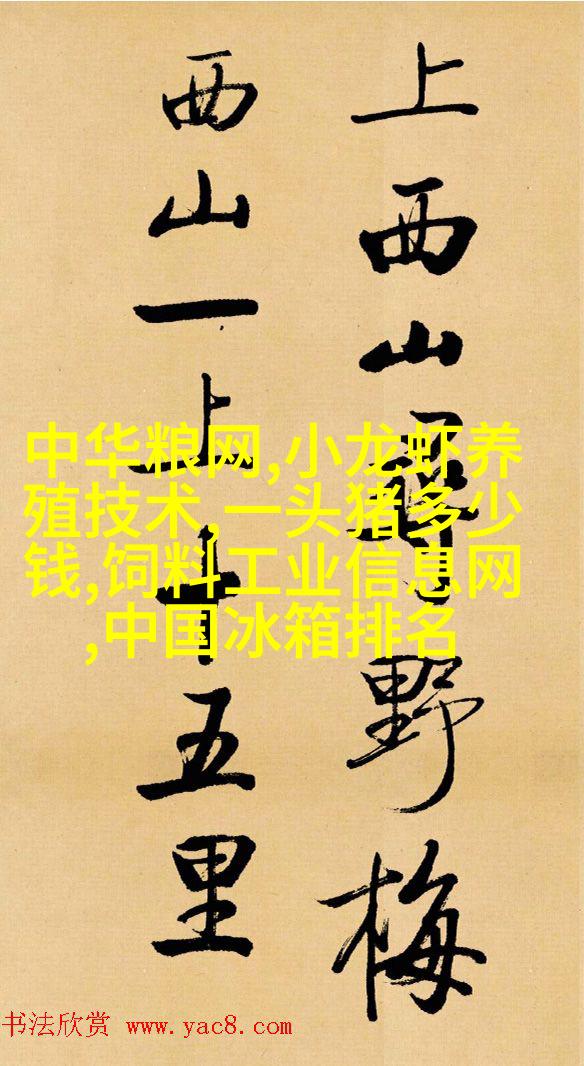 上西山尋野梅
西山一上十五里
中华粮网,小龙虾养
殖技术,一头猪多少
钱,饲料工业信息网
,中国冰箱排名
书法欣赏 www.yac8.com